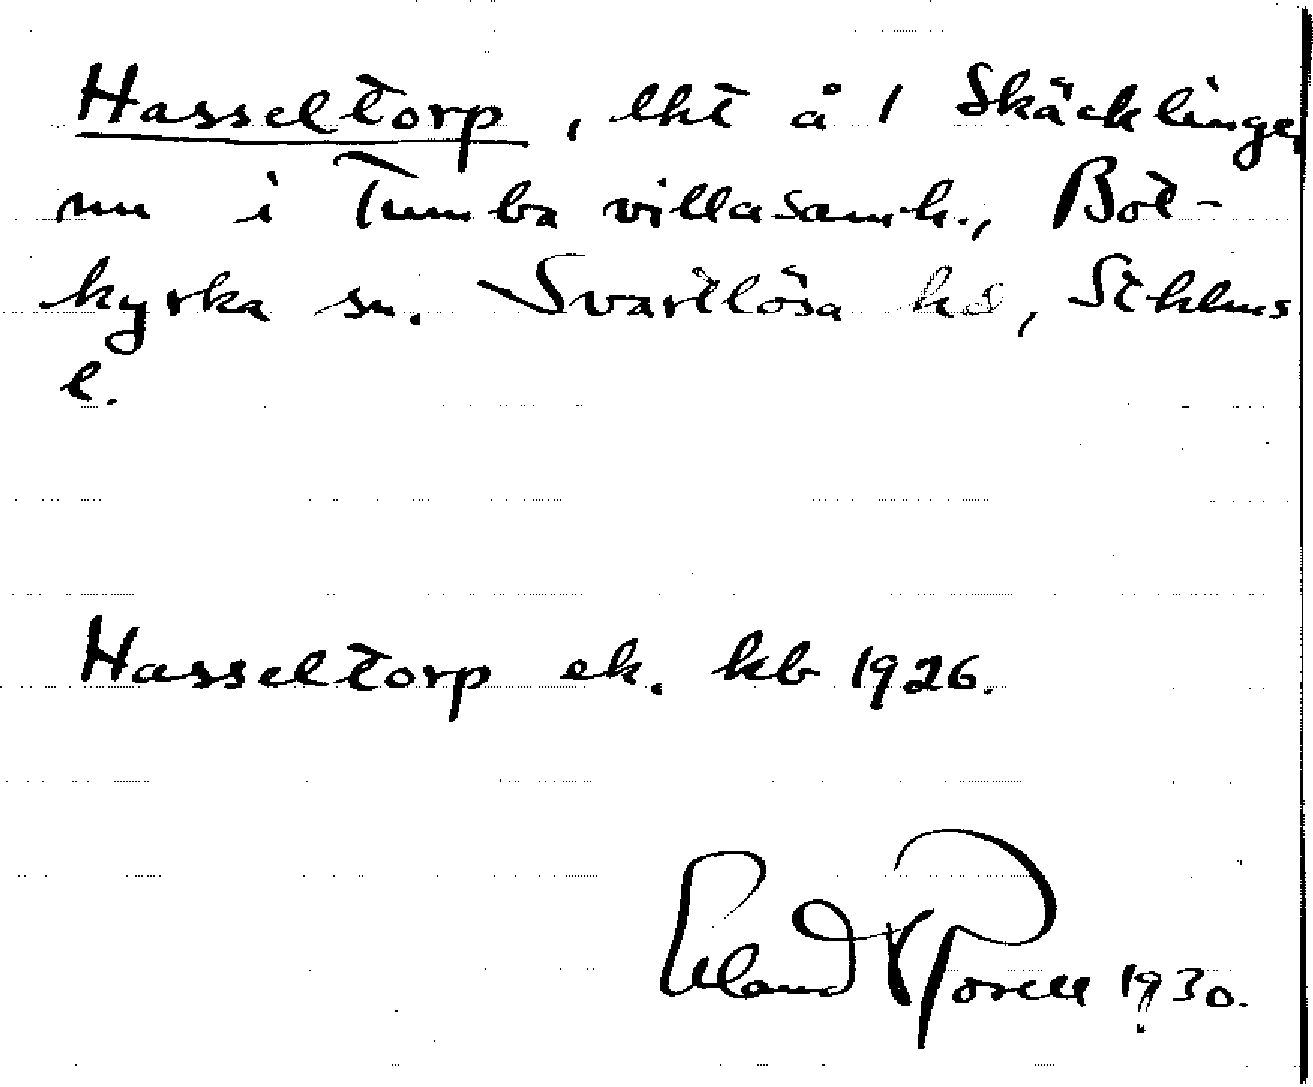 Hasseltorp, lht å 1 Skäcklinge,
nu i Tumba villasamh., Bot-
kyrka sn. Svartlösa hd, Sthlms
l.
Hasseltorp ek. kb 1926.
Erland Rosell 1930.